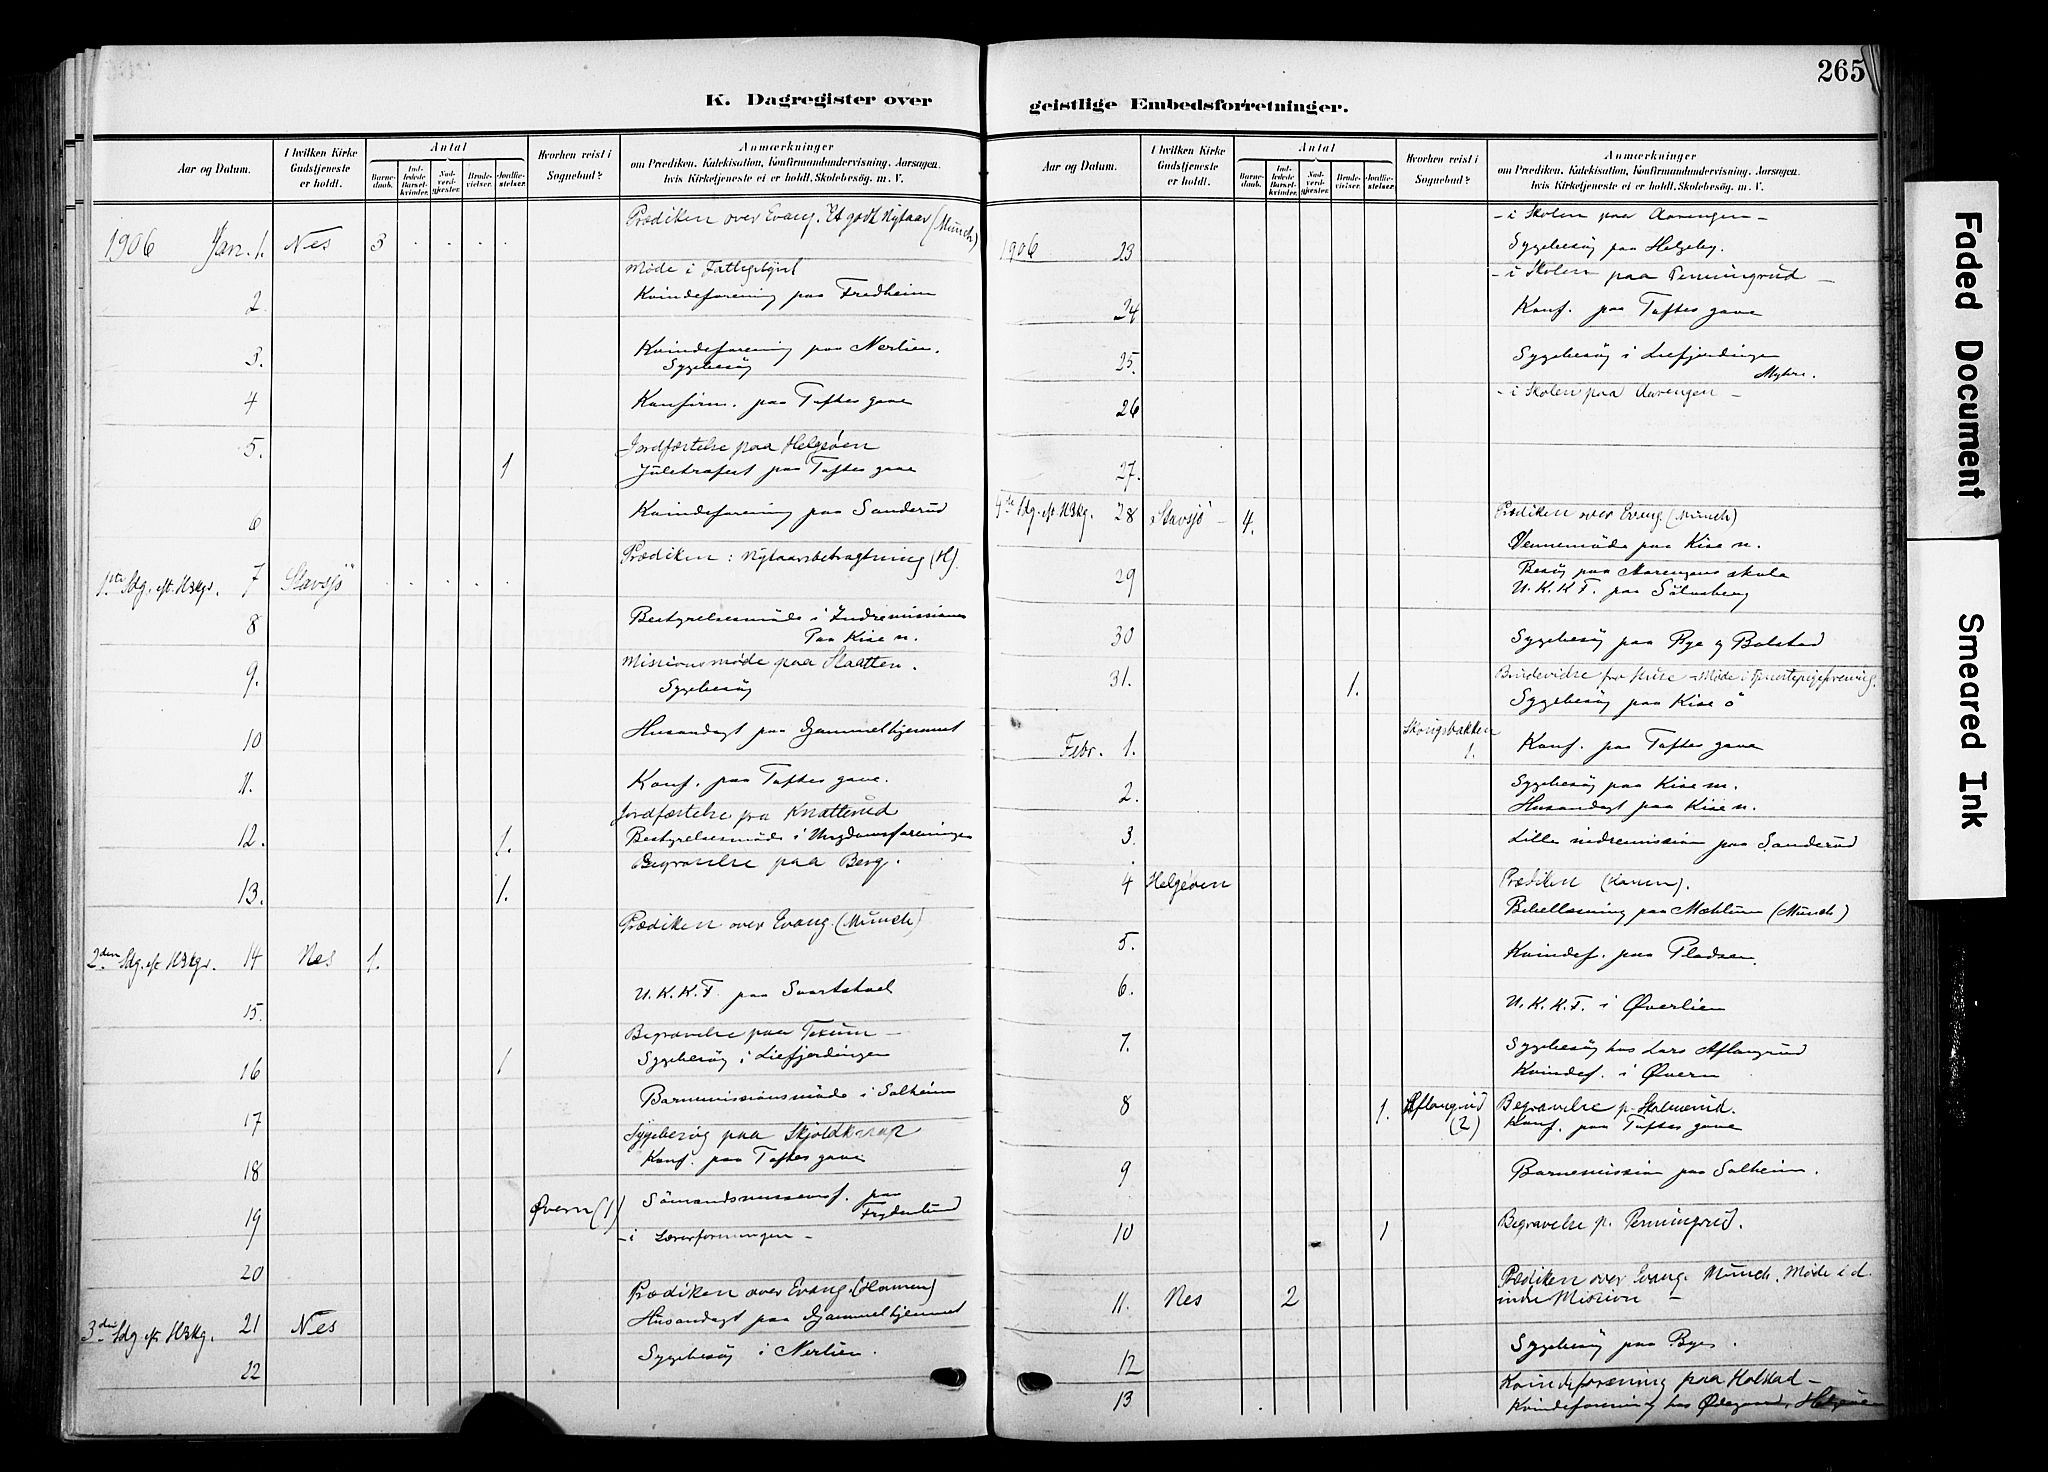 265
K. Dagregister over
geistlige Embedsforretninger.
Aar og Datum.
I hvilken Kirke Gudstjeneste er holdt.
Antal
Barnedaab.
Indledede Barselkvinder.
Nadverdgjester.
Brudevielser.
Jordfæstelser.
Hvorhen reist i Sognebud?
Anmærkninger
om Prædiken, Katekisation, Konfirmandundervisning, Aarsagen,
hvis Kirketjeneste ei er holdt. Skolebesøg. m. V.
1906 Jan. 1. Nes 3 Prædiken over Evang. Et godt Nytaar (Münch)
Møde i Fattigstyret
2. Kvindeforening paa Fredheim
3. Kvindeforening paa Nerlien.
Sygebesøg
4 Konfirm. paa Toftes gave
5. Jordfæstelse paa Helgøen
1 Juletræfest paa Toftes gave
6 Kvindeforening paa Sanderud
1ste Sdg. eft. H3kgr. 7 Stavsjö Prædiken: Nytaarsbetragtning (H).
8 Bestyrelsesmøde i Indremissionen
Paa Kise n.
9. Missionsmøde paa Staatten.
Sygebesøg
10 Husandagt paa Gammelhjemmet
11. Konf. paa Toftes gave.
Jordfæstelse fra Knatterud
12. 1. Bestyrelsesmøde i Ungdomsforeningen
Begravelse paa Berg.
13. 1.
2den Sdg. eft. H3kgr. 14 Nes 1. Prædiken over Evang. (Münch)
15. U. K. K. F. paa Svartstad
Begravelse paa Texum –
16 1 Sygebesøg i Liefjerdingen
17 Barnemissionsmøde i Solheim
Sygebesøg paa Skjoldkrap
18 Konf. paa Toftes gave
19 Øvern (1) Sömandsmissionsf. paa
Frydenlund
– i Lærerforeningen –
20
3die Sdg. eft. H3kg. 21 Nes Prædiken over Evang. (Hannen)
Husandagt paa Gammelhjemmet
22 Sygebesøg i Nerlien.
Aar og Datum.
I hvilken Kirke Gudstjeneste er holdt.
Antal
Barnedaab.
Indledede Barselkvinder.
Nadverdgjester.
Brudevielser.
Jordfæstelser.
Hvorhen reist i Sognebud?
Anmærkninger
om Prædiken, Katekisation, Konfirmandundervisning, Aarsagen,
hvis Kirketjeneste ei er holdt. Skolebesøg. m. V.
– i Skolen paa Aarengen –
1906 23 Sygebesøg paa Helgeby.
– i Skolen paa Penningrud –
24 Konf. paa Toftes gave
25. Sygebesøg i Liefjerdingen
Myhre.
26 – i Skolen paa Aarengen –
27.
4de Sdg. eft. H3kg. 28 Stavsjö 4. Prædiken over Evang. (Münch)
Vennemöde paa Kise n.
29 Besøg paa Aarengens skole
U. K. K. F. paa Sölvsberg
30 Sygebesøg paa Rye og Bolstad
31. 1. Brudevielse fra Huse – Møde i Tjenestepigeforening.
Sygebesøg paa Kise ö
Febr. 1. Skougsbakken 1. Konf. paa Toftes gave
2. Sygebesøg paa Kise m.
Husandagt paa Kise n.
3. Lille indremission paa Sanderud
4 Helgøen Prædiken (Hannen).
Bibellæsning paa Mæhlum (Münch)
5. Kvindef. paa Pladsen
6. U. K. K. F. i Øverlien
7. Sygebesøg hos Lars Aflangrud
Kvindef. i Øvern
8 1. Aflangrud (2) Begravelse p. Stolmerud.
Konf. paa Toftes gave
9 Barnemission paa Solheim.
10 1 Begravelse p. Penningrud.
11. Nes 2 Prædiken over Evang. Münch. Møde i d.
indre Mission –
12 Sygebesøg paa Bye.
13 Kvindeforening paa Holstad –
Kvindeforening hos Ødegaard, Helgøen
Faded Document
Smeared Ink